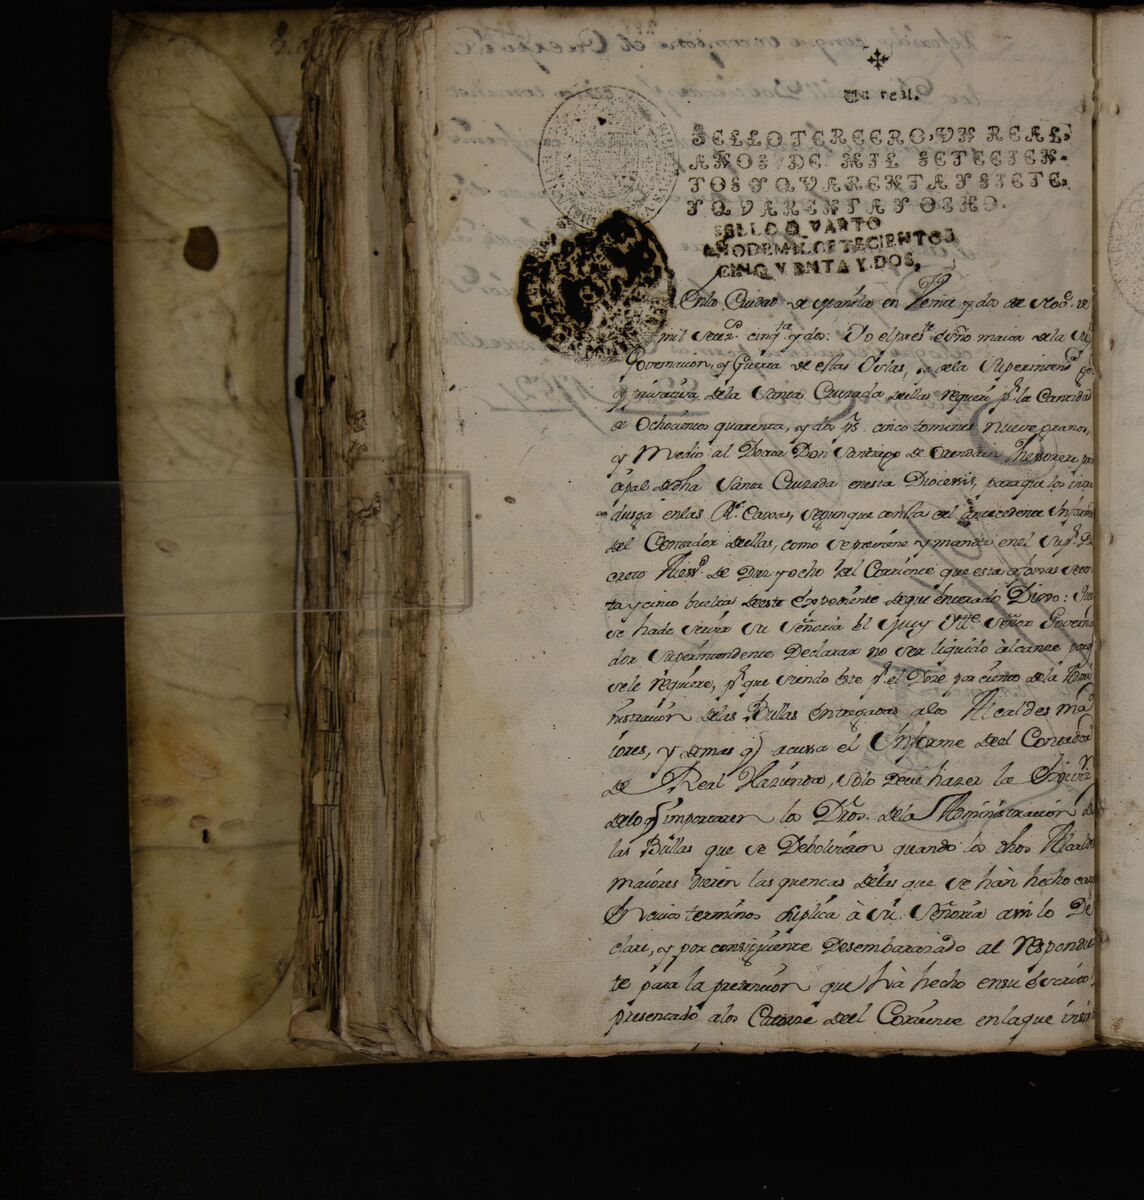 Un real.
SELLO TERCERO, VN REAL,
AÑOS DE MIL SETECIEN-
TOS Y QVARENTA Y SIETE,
Y QVARENTA Y OCHO.
SELLO QVARTO
AÑO DE MIL SETECIENTOS
CINQVENTA Y DOS,
En la Ciudad de Manila en Veinte y dos de Nov.e de
mil Setez.os cinq.ta y dos: Yo el pres.te Esno maior de la
Governacion, y Guerra de estas Yslas, y de la Superintend.a
y privativa de la Santa Cruzada de ellas requeri p.r la Cantidad
de Ochocientos quarenta, y dos p.s cinco tomines nueve granos,
y Medio al Doctor Don Santiago de Orendain Thessorero prin
cipal de dha Santa Cruzada en esta Diocesis, para q.e los intro
dusga en las R.s Caxas, segun que consta del antecedente Ynforme
del Contador de ellas, como se previene y manda en el Sup.r De
creto Asess.do de Diez y ocho del Corriente que esta a foxas
ta y cinco buelta de este Expediente de que enterado Dixo: Que
se ha de servir Su Señoria El Muy Ytt.e Señor Governa
dor Superintendente Declarar no ser liquido el alcance para q.e
se le requiere, p.r que siendo este p.r el Doze por ciento de la Admi
nistracion de las Bullas entregadas a los Alcaldes ma
iores, y demas q.e acusa el Ynforme de el Contador
de Real Hazienda, solo deve hazer la
de lo q.e importaren los Dros. de la Administracion de
las Bullas que se Debolvieren quando los dhos Alcaldes
maiores dieren las quentas de las que se han hecho cargo
En cuios terminos suplica à Su Señoria assi lo De
clare, y por consiguiente Desembarazado al respondien
te para la pretencion que hà hecho en su escrito,
presentado a los Catorze de el Corriente en la que insis